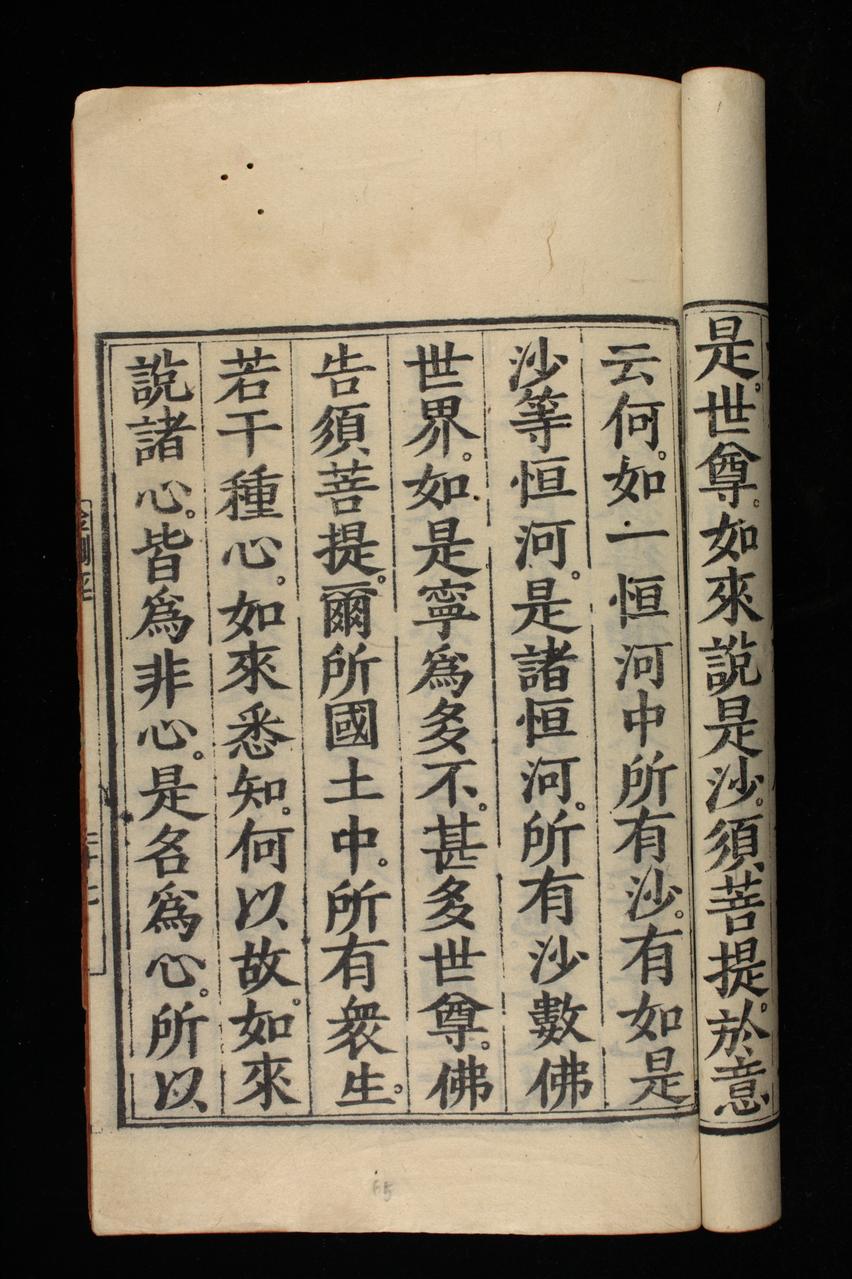 是。世尊。如來說是沙。須菩提。於意
云何。如一恒河中所有沙。有如是
沙等恒河。是諸恒河。所有沙數佛
世界。如是寧為多不。甚多世尊。佛
告須菩提。爾所國土中。所有衆生。
若干種心。如來悉知。何以故。如來
說諸心。皆爲非心。是名爲心。所以
65